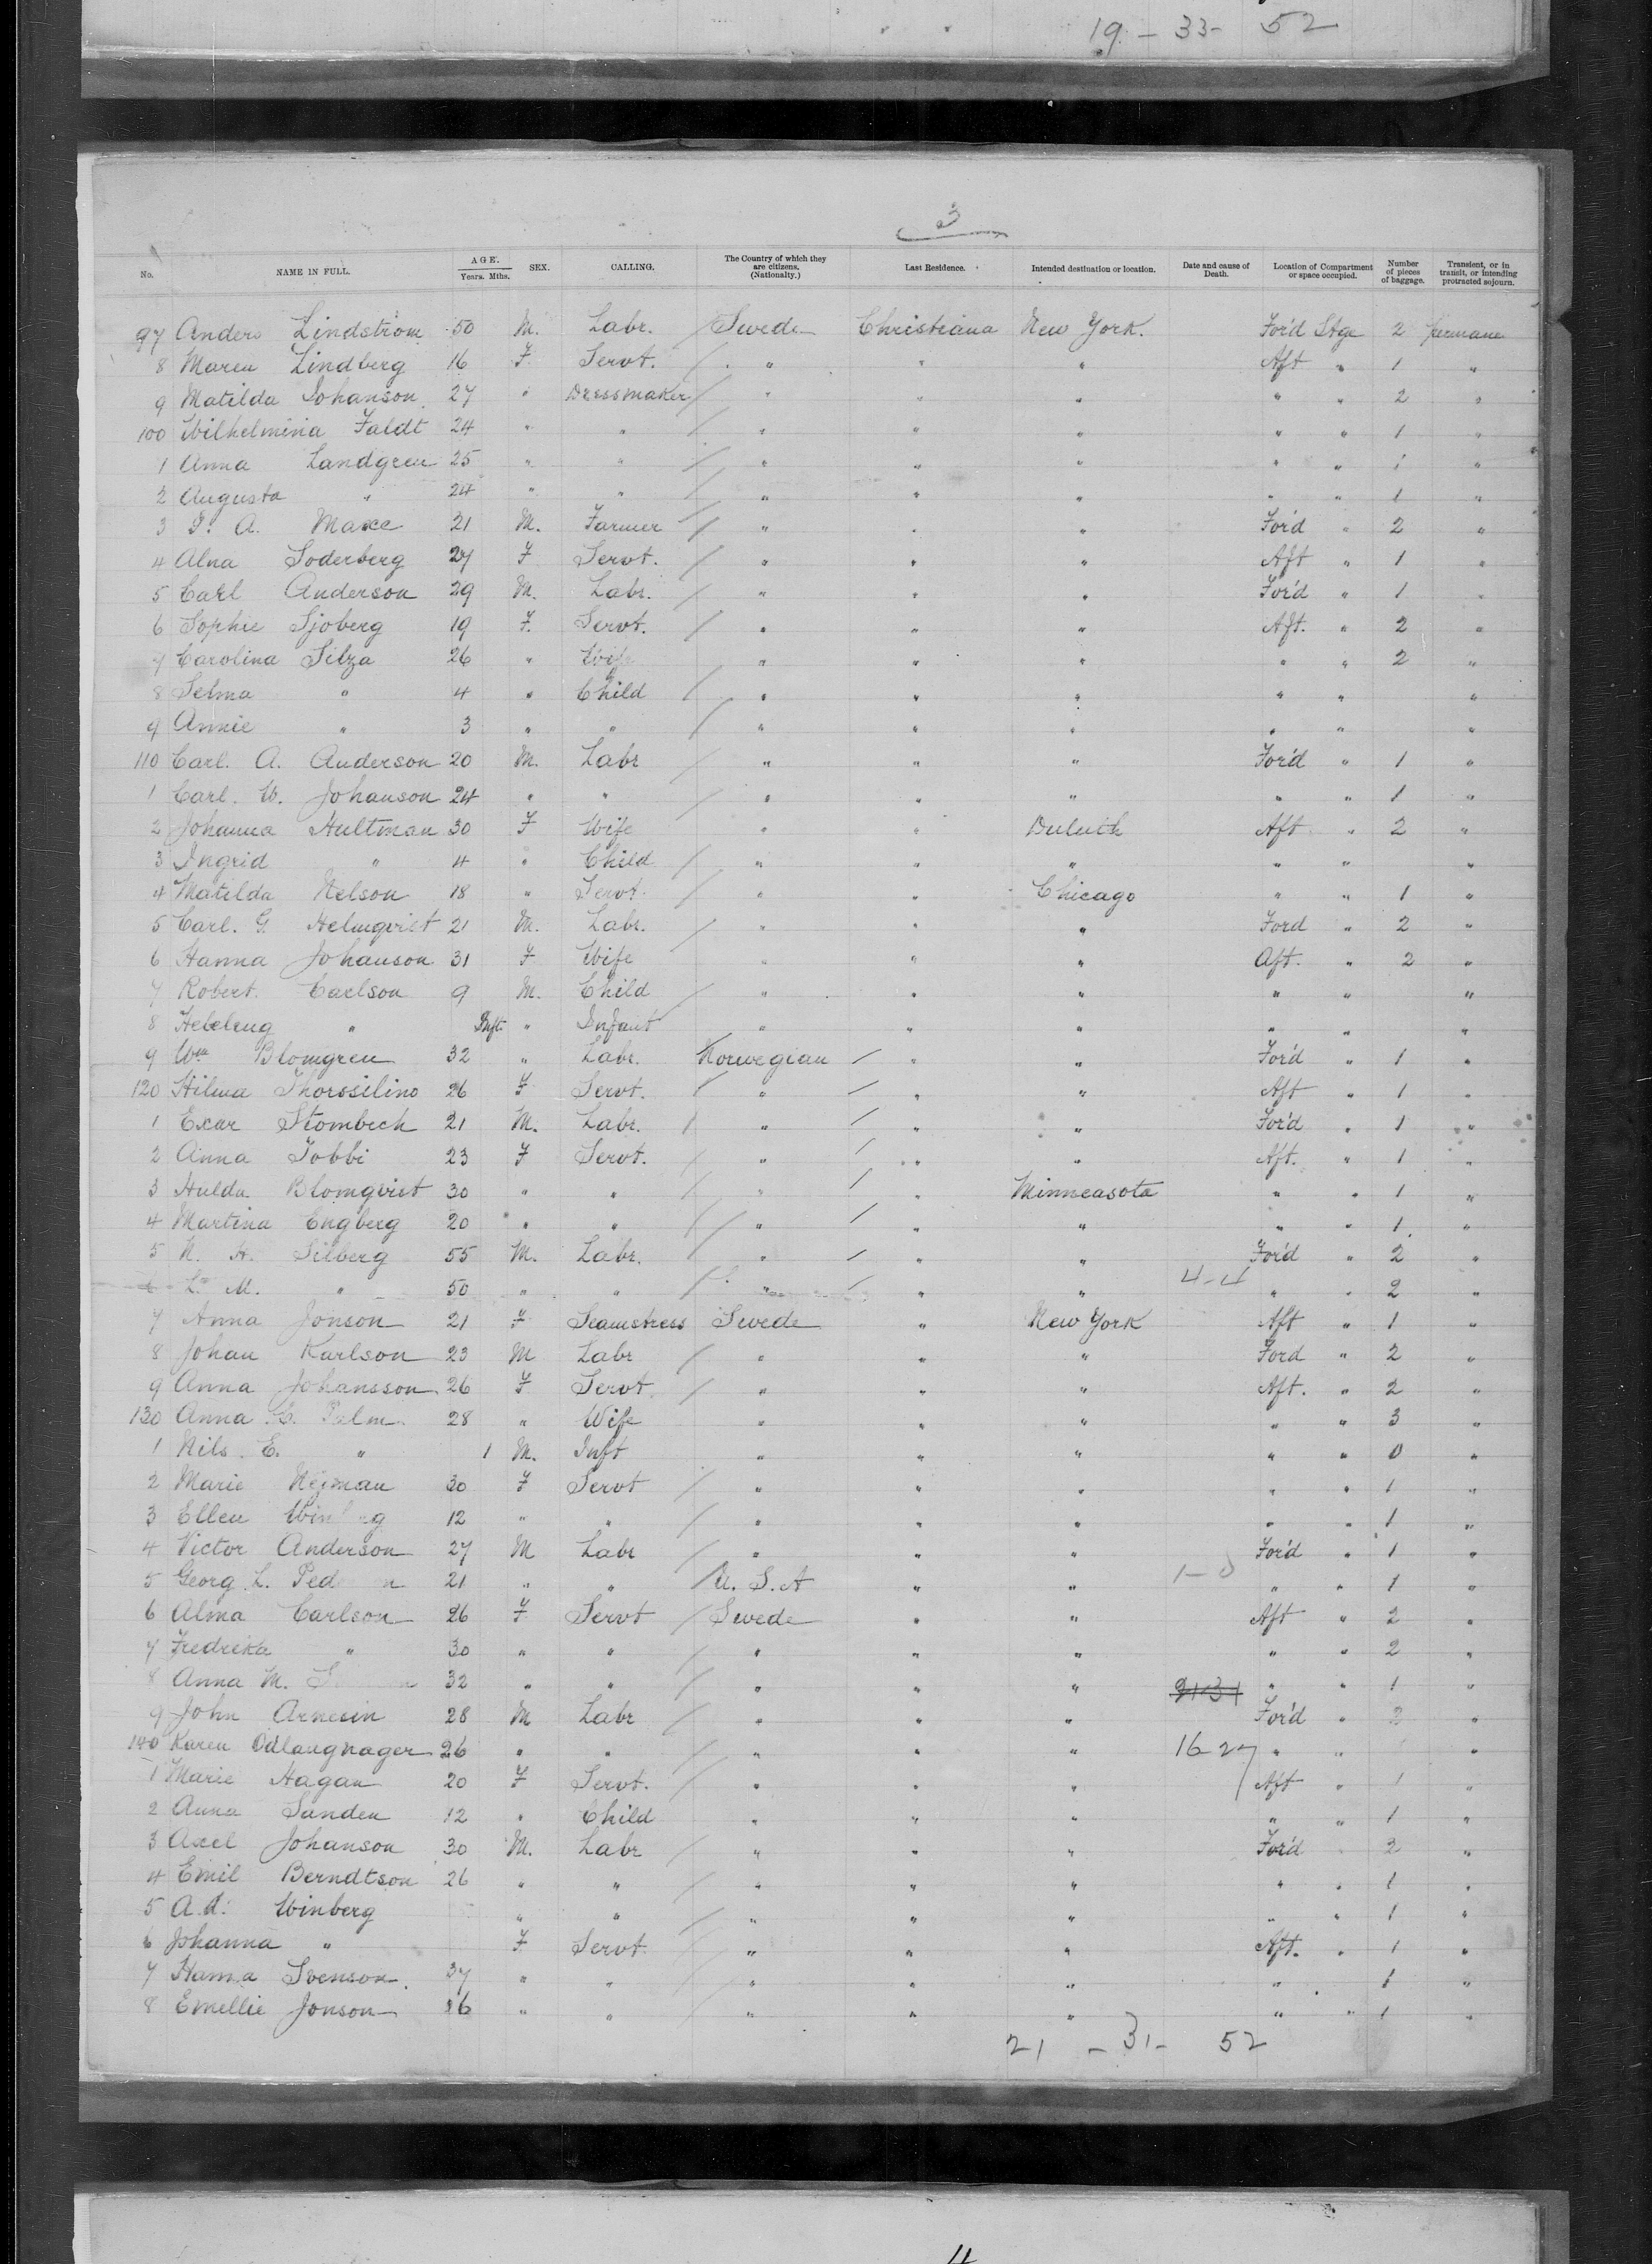 19 - 33 - 52
3
No. NAME IN FULL. AGE. Years. Mths. SEX. CALLING. The Country of which they are citizens. (Nationality.) Last Residence. Intended destination or location. Date and cause of Death. Location of Compartment or space occupied. Number of pieces of baggage. Transient, or in transit, or intending protracted sojourn.
97 Anders Lindstrom 50 M. Labr. Swede Christiana New York. For'd Stge 2 permane
8 Maren Lindberg 16 F Servt. " " " Aft " 1 "
9 Matilda Johanson 27 " Dressmaker " " " " " 2 "
100 Wilhelmina Faldt 24 " " " " " " " 1 "
1 Anna Landgren 25 " " " " " " " 1 "
2 Augusta " 24 " " " " " " " 1 "
3 A. 21 M. Farmer " " " For'd " 2 "
4 Alna Soderberg 27 F Servt. " " " Aft " 1 "
5 Carl Anderson 29 M. Labr. " " " For'd " 1 "
6 Sophie Sjoberg 19 F. Servt. " " " Aft. " 2 "
7 Carolina Silza 26 " Wife " " " " " 2 "
8 Selma " 4 " Child " " " " " "
9 Annie " 3 " " " " " " " "
110 Carl. A. Anderson 20 M. Labr " " " For'd " 1 "
1 Carl. W. Johanson 24 " " " " " " " 1 "
2 Johanna Hultman 30 F Wife " " Duluth Aft " 2 "
3 Ingrid " 4 " Child " " " " " "
4 Matilda Nelson 18 " Servt. " " Chicago " " 1 "
5 Carl. G. Helmqvist 21 M. Labr. " " " Ford " 2 "
6 Hanna Johanson 31 F Wife " " " Aft. " 2 "
7 Robert Carlson 9 M. Child " " " " " "
8 " " Infant " " " " " "
9 Wm Blomgren 32 " Labr. Norwegian " " For'd " 1 "
120 Hilma Thorssilino 26 F Servt. " " " Aft " 1 "
1 Excar Stombech 21 M. Labr. " " " For'd " 1 "
2 Anna Tobbi 23 F Servt. " " " Aft. " 1 "
3 Hulda Blomqvist 30 " " " " Minneasota " " 1 "
4 Martina Engberg 20 " " " " " " " 1 "
5 N. H. Silberg 55 M. Labr. " " " For'd " 2 "
6 L. M. " 50 " " " " " 4-4 " " 2 "
7 Anna Jonson 21 F Seamstress Swede " New York Aft " 1 "
8 Johan Karlson 23 M Labr " " " Ford " 2 "
9 Anna Johansson 26 F Servt. " " " Aft. " 2 "
130 Anna Palm 28 " Wife " " " " " 3 "
1 Nils. E. " 1 M. Inft " " " " " 0 "
2 Marie Nejman 30 F Servt " " " " " 1 "
3 Ellen 12 " " " " " " " 1 "
4 Victor Anderson 27 M Labr " " " For'd " 1 "
5 Georg L. 21 " " U. S. A " " " " 1 "
6 Alma Carlson 26 F Servt Swede " " Aft " 2 "
7 Fredrika " 30 " " " " " " " 2 "
8 Anna M. 32 " " " " " 21-31 " " 1 "
9 John Arnesin 28 M Labr " " " For'd " 2 "
140 Karen Odlaugnager 26 " " " " " 16 27 " " "
1 Marie Hagan 20 F Servt. " " " Aft " 1 "
2 Anna Sanden 12 " Child " " " " " 1 "
3 Axel Johanson 30 M. Labr " " " For'd 2 "
4 Emil Berndtson 26 " " " " " " " 1 "
5 A. Winberg " " " " " " " 1 "
6 Johanna " F Servt. " " " Aft. " 1 "
7 Hanna Svenson. 37 " " " " " " 1 "
8 Emellie Jonson 16 " " " " " " " 1 "
21 - 31 - 52
4